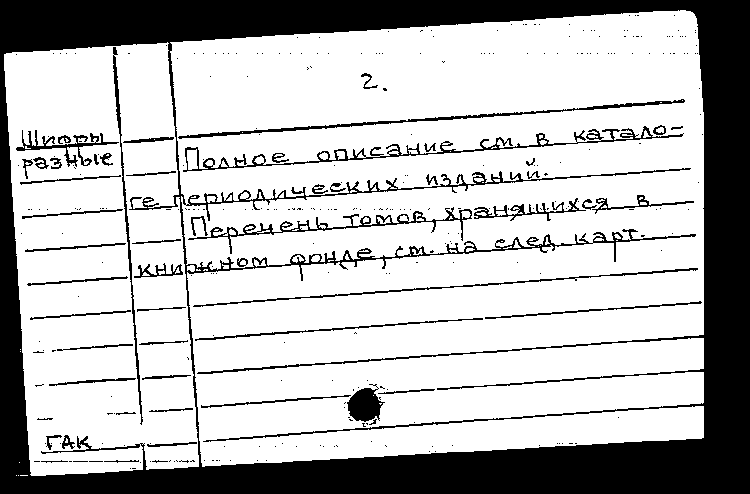 2.
Шифры
разные
Полное описание см. в катало-
ге периодических изданий.
Перечень томов, хранящихся в
книжном фонде, см. на след. карт.
ГАК